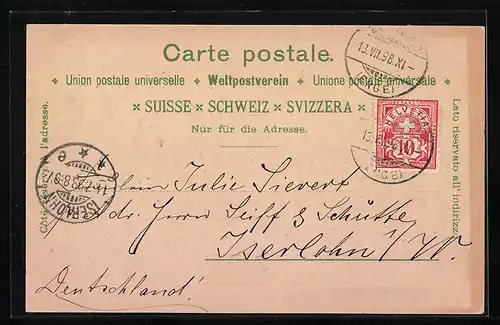 Carte postale.
Union postale universelle Weltpostverein Unione postale universale
SUISSE SCHWEIZ SVIZZERA
Nur für die Adresse.
Côté réservé à l'adresse.
Lato riservato all' indirizzo.
13.VII.98.XI-
HELVETIA
10
ISERLOHN
Julie Sievert
dr. Herrn Seiff & Schütte
Iserlohn i/W.
Deutschland!